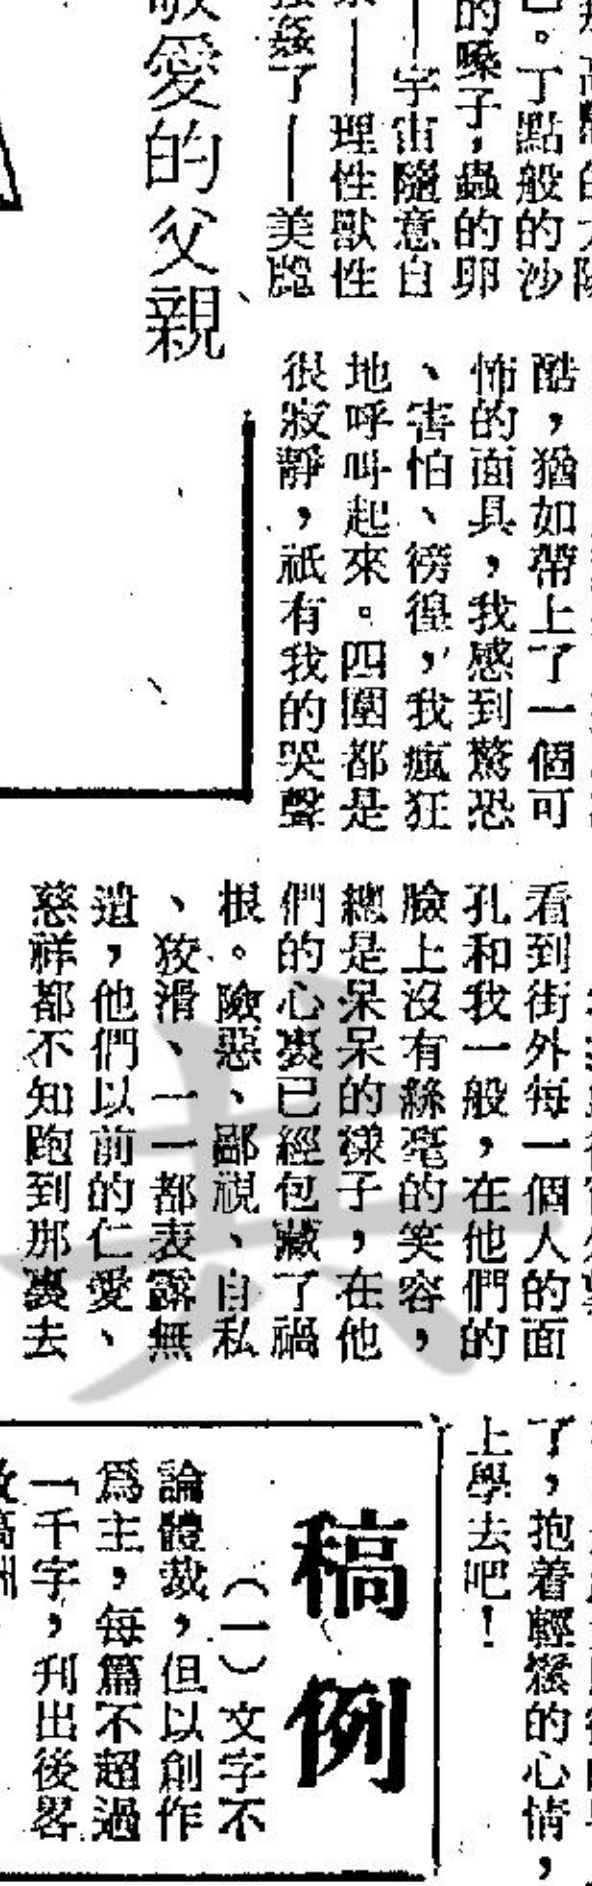 點般的沙
的嗓子，蟲的卵
——宇宙隨意自
——理性獸性
姦了——美麗
愛的父親
酷，猶如帶上了一個可
怖的面具，我感到驚恐
、害怕、徬徨，我瘋狂
地呼叫起來。四圍都是
很寂靜，祇有我的哭聲
看到街外每一個人的面
孔和我一般，在他們的
臉上沒有絲毫的笑容，
總是呆呆的樣子，在他
們的心裏已經包藏了禍
根。險惡、鄙視、自私
、狡滑、一一都表露無
遺，他們以前的仁愛、
慈祥都不知跑到那裏去
了，抱着輕鬆的心情，
上學去吧！
稿例
（一）文字不
論體裁，但以創作
爲主，每篇不超過
一千字，刋出後畧
共